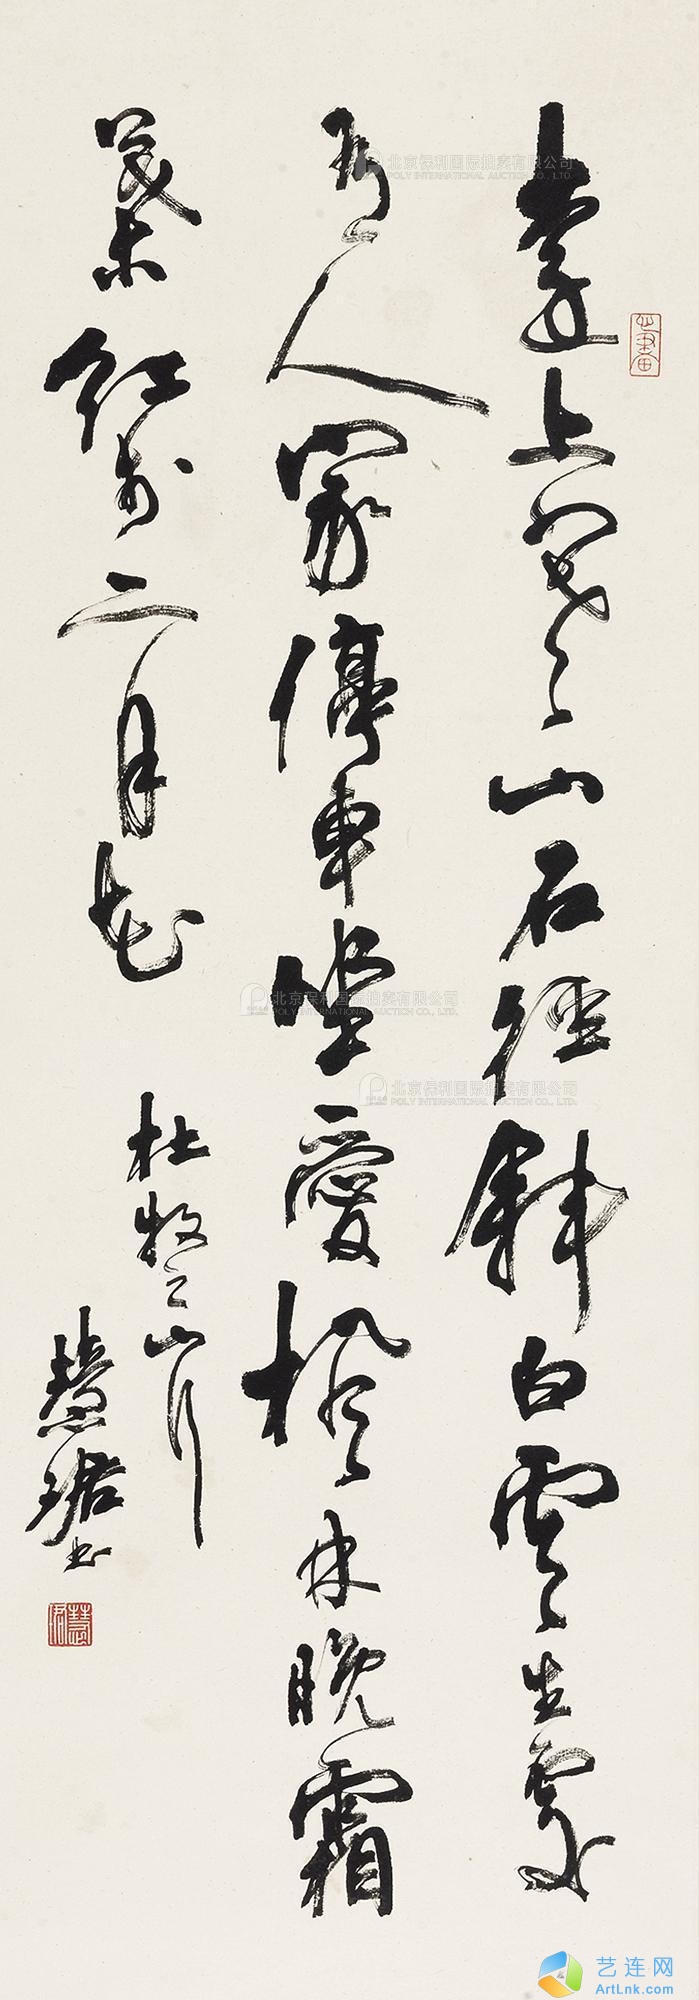 遠上寒山石徑斜白雲生處
有人家停車坐愛楓林晚霜
葉紅於二月花
杜牧之山行
慧珺书
慧珺
北京保利国际拍卖有限公司
POLY INTERNATIONAL AUCTION CO., LTD.
北京保利国际拍卖有限公司
POLY INTERNATIONAL AUCTION CO., LTD.
北京保利国际拍卖有限公司
POLY INTERNATIONAL AUCTION CO., LTD.
艺连网
ArtLnk.com